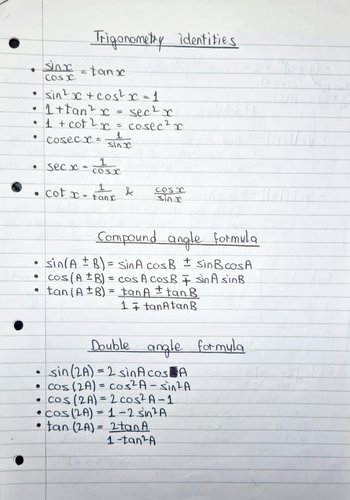 Trigonometry identities
• sinx/cosx = tanx
• sin²x + cos²x = 1
• 1 + tan²x = sec²x
• 1 + cot²x = cosec²x
• cosecx = 1/sinx
• secx = 1/cosx
• cotx = 1/tanx & cosx/sinx
Compound angle formula
• sin(A ± B) = sinA cosB ± sinB cosA
• cos(A ± B) = cosA cosB ∓ sinA sinB
• tan(A ± B) = tanA ± tanB / 1 ∓ tanA tanB
Double angle formula
• sin(2A) = 2 sinA cosA
• cos(2A) = cos²A − sin²A
• cos(2A) = 2cos²A − 1
• cos(2A) = 1 − 2 sin²A
• tan(2A) = 2tanA / 1 − tan²A